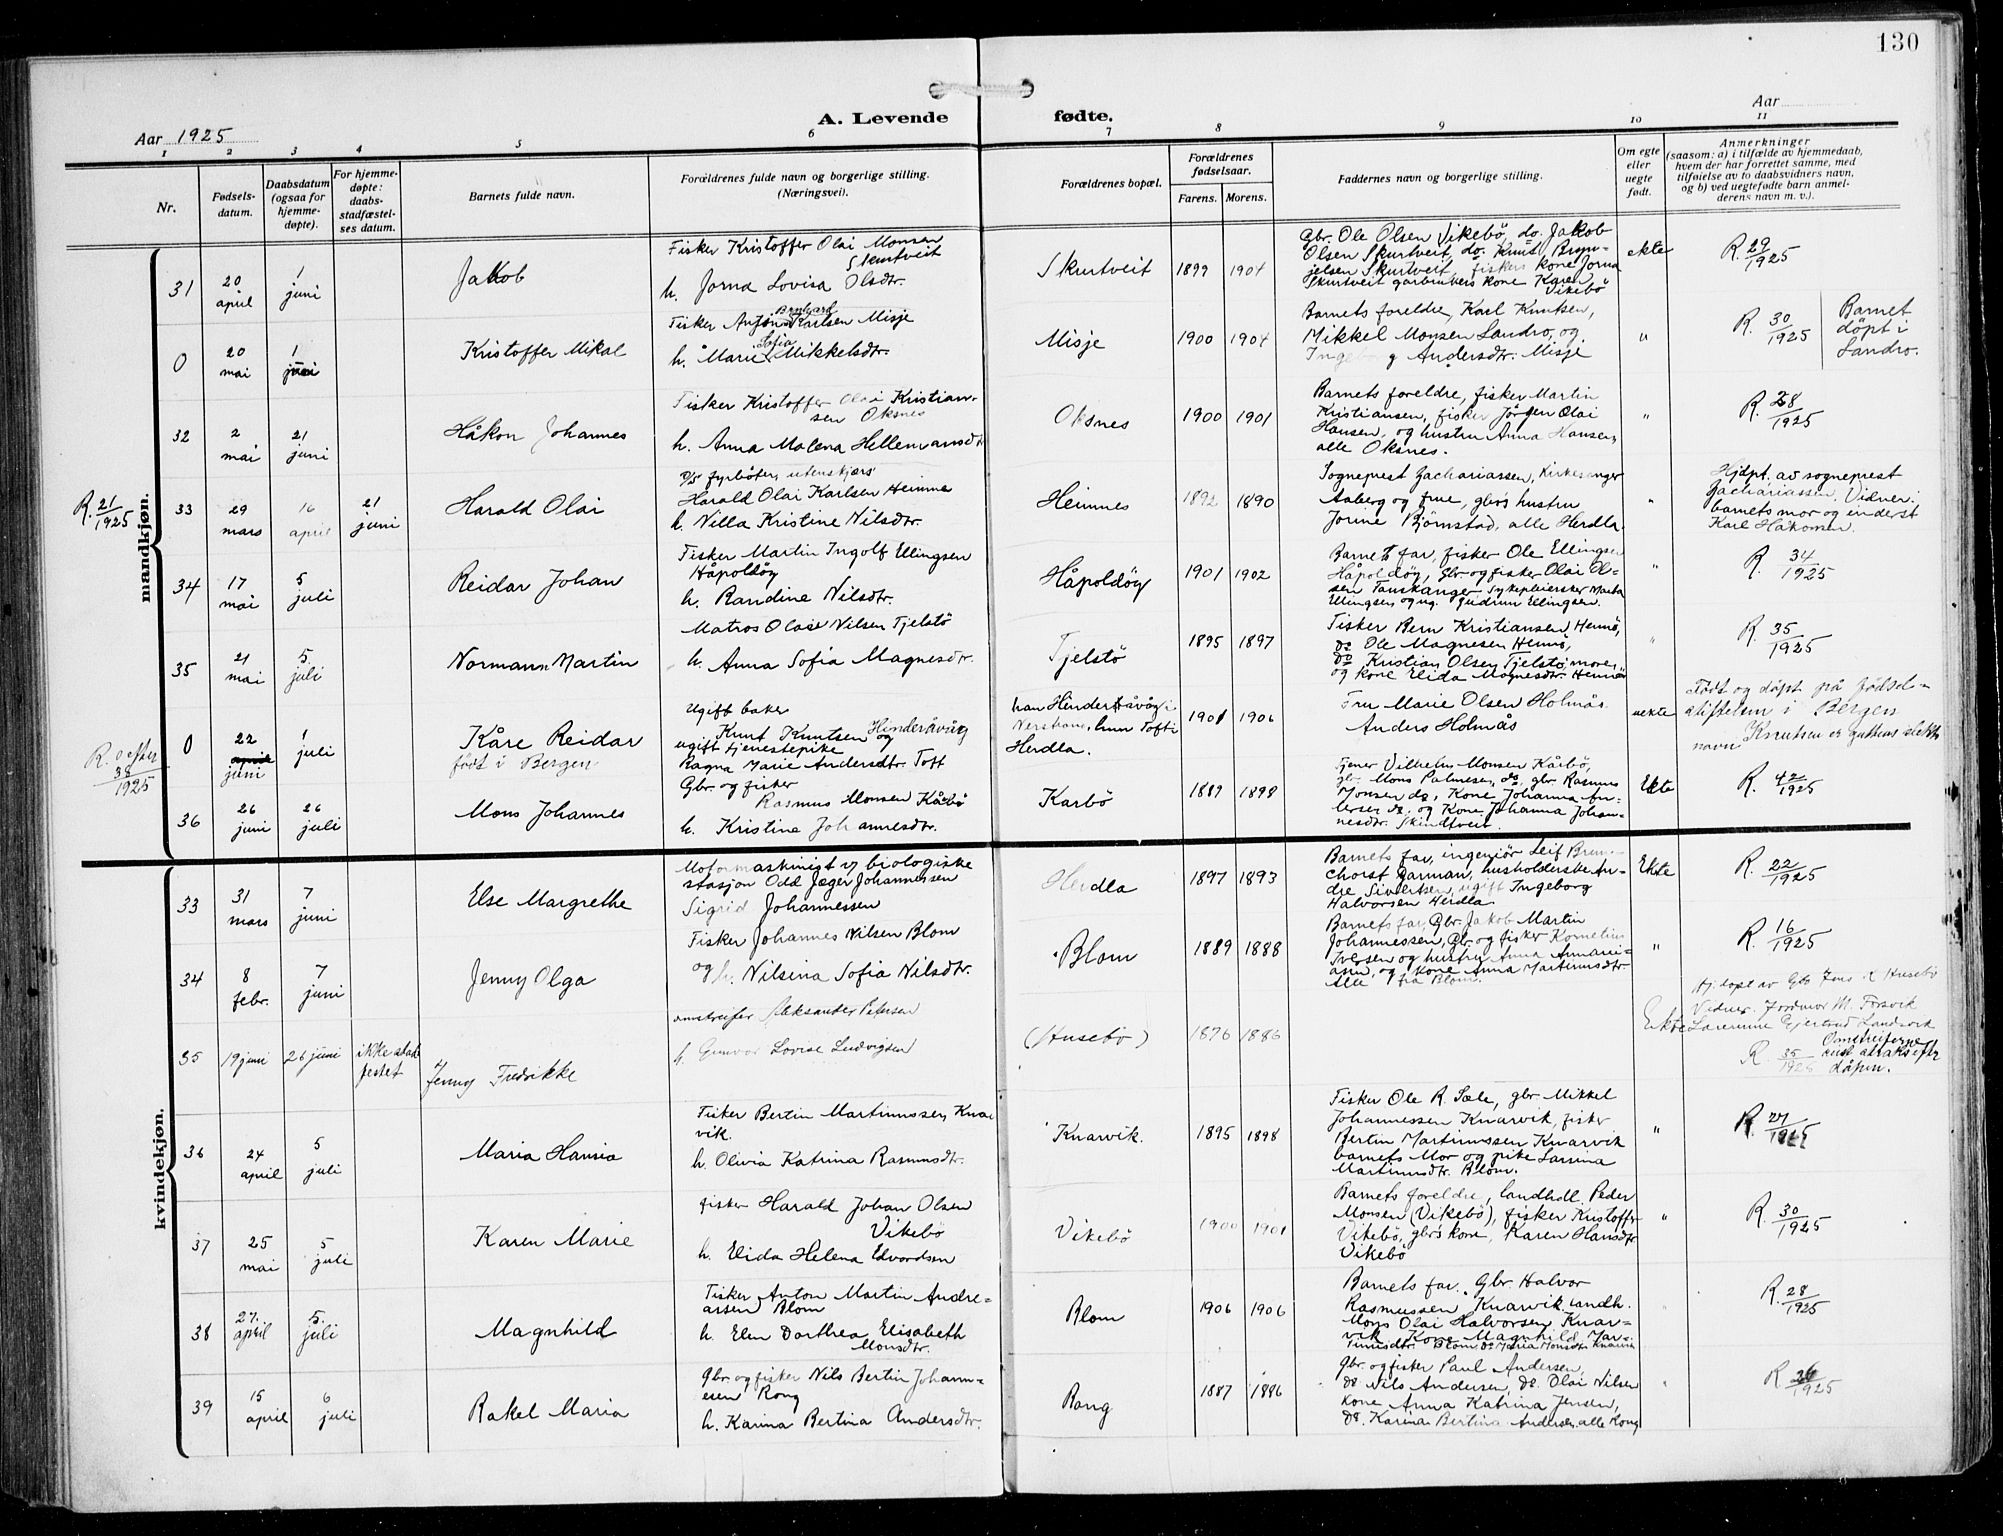 130
A. Levende fødte.
Aar 1925
Aar
1 2 3 4 5 6 7 8 9 10 11
Nr.
Fødsels-
datum.
Daabsdatum
(ogsaa for
hjemme-
døpte).
For hjemme-
døpte:
daabs-
stadfæstel-
ses datum.
Barnets fulde navn.
Forældrenes fulde navn og borgerlige stilling.
(Næringsvei).
Forældrenes bopæl.
Forældrenes
fødselsaar.
Farens. Morens.
Faddernes navn og borgerlige stilling.
Om egte
eller
uegte
født.
Anmerkninger
(saasom: a) i tilfælde av hjemmedaab,
hvem der har forrettet samme, med
tilføielse av to daabsvidners navn,
og b) ved uegtefødte barn anmel-
derens navn m. v.).
mandkjøn.
31
20
april
1
juni
Jakob
Fisker Kristoffer Olai Monsen
Skurtveit
h. Jorna Lovisa Olsdtr.
Skurtveit
1899 1904
Gbr. Ole Olsen Vikebö, do. Jakob
Olsen Skurtveit, do. Knut Bryn-
jelsen Skurtveit, fiskers kone Jorna
Skurtveit garbrukers kone Karen
Vikebö
ekte
R. 29/1925
0
20
mai
1
juni
Kristoffer Mikal
Bernhard
Fisker Anton Karlsen Misje
Sofia
h. Marie Mikkelsdtr.
Misje
1900 1904
Barnets foreldre, Karl Knutsen,
Mikkel Monsen Landro, og
Ingeborg Andersdtr. Misje
"
R. 30/1925
Barnet
döpt i
Landro.
32
2
mai
21
juni
Håkon Johannes
Fisker Kristoffer Olai Kristian-
sen Oksnes
h. Anna Malena Hellemansdtr
Oksnes
1900 1901
Barnets foreldre, fisker Martin
Kristiansen, fisker Jörgen Olai
Hansen, og hustru Anna Hansen,
alle Oksnes.
"
R. 28/1925
R. 21/1925
33
29
mars
16
april
21
juni
Harald Olai
fyrböter, utenskjærs
Harald Olai Karlsen Heimnes
h. Villa Kristine Nilsdtr.
Heimnes
1892 1890
Sogneprest Zachariassen, Kirkesanger
Aaberg og frue, gbrs hustru
Jorine Björnstad, alle Herdla.
"
Hjdpt. av sogneprest
Zachariassen. Vidner:
barnets mor og inderst
Karl Håkonsen.
34
17
mai
5
juli
Reidar Johan
Fisker Martin Ingolf Ellingsen
Håpoldöy
h. Randine Nilsdtr.
Håpoldöy
1901 1902
Barnets far, fisker Ole Ellingsen
Håpoldöy, Gbr og fisker Olai Ol-
sen Tauskanger Sykepleierske Marta
Ellingsen og ug. Gudrun Ellingsen.
"
R. 34/1925
35
21
mai
5
juli
Normann Martin
Matros Olai Nilsen Tjelstö
h. Anna Sofia Magnesdtr.
Tjelstö
1895 1897
Fisker Bern Kristiansen, Hernö,
do Ole Magnesen Hernö,
do Kristian Olsen Tjelstö, moren
og kone Elida Magnesdtr. Hernö
"
R. 35/1925
R. 0 efter
38/1925
0
22
juni
1
juli
Kåre Reidar
født i Bergen
Ugift baker
Knut Knutsen Hinderåvåg
og
ugift tjenestepike
Ragna Marie Andersdtr. Toft
han Hinderåvåg i
Nerstrand, hun Toft i
Herdla.
1901 1906
Fru Marie Olsen Holmås
Anders Holmås
uekte
Födt og döpt på födsels-
stiftelsen i Bergen
Knutsen er guttens slekts-
navn
36
26
juni
26
juli
Mons Johannes
Gbr. og fisker
Rasmus Monsen Kårbö
h. Kristine Johannesdtr.
Karbö
1889 1898
Tjener Vilhelm Monsen Kårbö,
gbr. Mons Palmesen, do, gbr Rasmus
Monsen do, Kone Johanna An-
dersen do. og Kone Johanna Johan-
nesdtr. Skindtveit.
Ekte
R. 42/1925
kvindekjøn.
33
31
mars
7
juni
Else Margrethe
Motormaskinist v/ biologiske
stasjon Odd Jæger Johannessen
Sigrid Johannessen
Herdla
1897 1893
Barnets far, ingeniör Leif Brun-
chorst Garman, husholderske An-
dre Sivertsen, ugift Ingeborg
Halvorsen Herdla
Ekte
R. 22/1925
34
8
febr.
7
juni
Jenny Olga
Fisker Johannes Nilsen Blom
og h. Nilsina Sofia Nilsdtr.
Blom
1889 1888
Barnets far, Gbr. Jakob Martin
Johannessen, Gbr. og fisker Kornelius
Iversen og hustru Anna Anmari-
asn, og kone Anna Martinusdtr.
alle fra Blom.
"
R. 16/1925
35
19 juni
26 juni
ikke stad-
festet
Jenny Fredrikke
omstreifer Aleksander Petersen
h. Gunvor Lovise Ludvigsen
(Husebö)
1876 1886
Ekte
Hj.döpt av Gbr Jens K Husebö
Vidner. Jordmor M. Torsvik
Laremine Gjertrud Landsvik
R. 35/1925
Omstreiferne
reist straks efter
dåpen.
36
24
april
5
juli
Maria Hansia
Fisker Bertin Martinussen Knar-
vik.
h. Olivia Katrina Rasmusdtr.
Knarvik.
1895 1898
Fisker Ole R. Sæle, gbr Mikkel
Johannessen Knarvik, fisker
Bertin Martinussen Knarvik
barnets Mor og pike Larsina
Martinusdtr. Blom.
"
R. 27/1925
37
25
mai
5
juli
Karen Marie
fisker Harald Johan Olsen
Vikebö
h. Elida Helena Edvardsen
Vikebö
1900 1901
Barnets foreldre, landhdl. Peder
Monsen (Vikebö), fisker Kristoffer
Vikebö, gbrs kone, Karen Hansdtr
Vikebö
"
R. 30/1925
38
27.
april
5.
juli
Magnhild
Fisker Anton Martin Andre-
assen Blom
h. Elen Dorthea Elisabeth
Monsdtr.
Blom
1906 1906
Barnets far. Gbr. Halvor
Rasmussen Knarvik landh.
Mons Olai Halvorsen Knar-
vik Kone Magnhild Mar-
tinusdtr. Blom Do Maria Monsdtr Knarvik
R. 28/1925
39
15
april
6
juli
Rakel Maria
Gbr. og fisker Nils Bertin Johann-
esen Rong
h. Karina Bertina Andersdtr.
Rong
1887 1886
Gbr. og fisker Paul Andersen,
Do Nils Andersen, Do. Olai Nilsen
Kone Anna Katrina Jensen,
Do. Karina Bertina Andersen, alle Rong
R. 26/1925